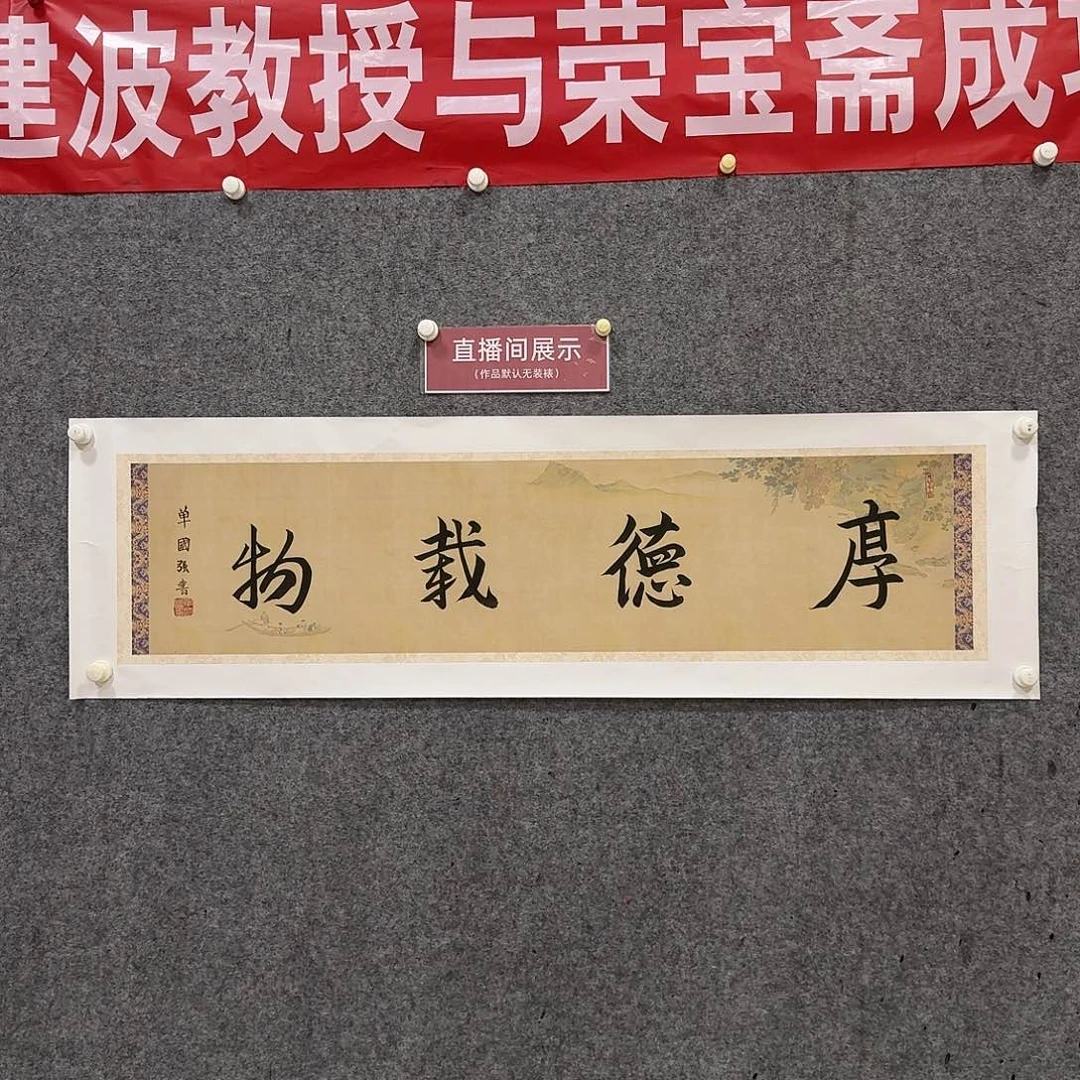 波教授与荣宝斋成
直播间展示
(作品默认无装裱)
厚德載物
单國强書